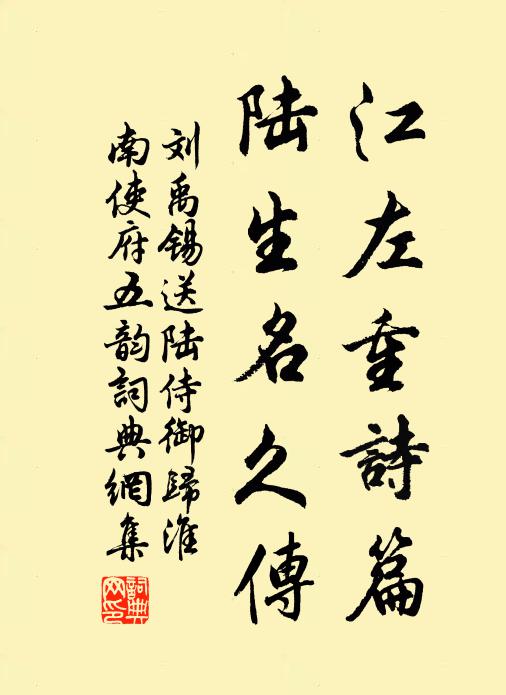 江左重詩篇
陸生名久傳
刘禹锡送陆侍御歸淮
南使府五韵詞典網集
詞典網印